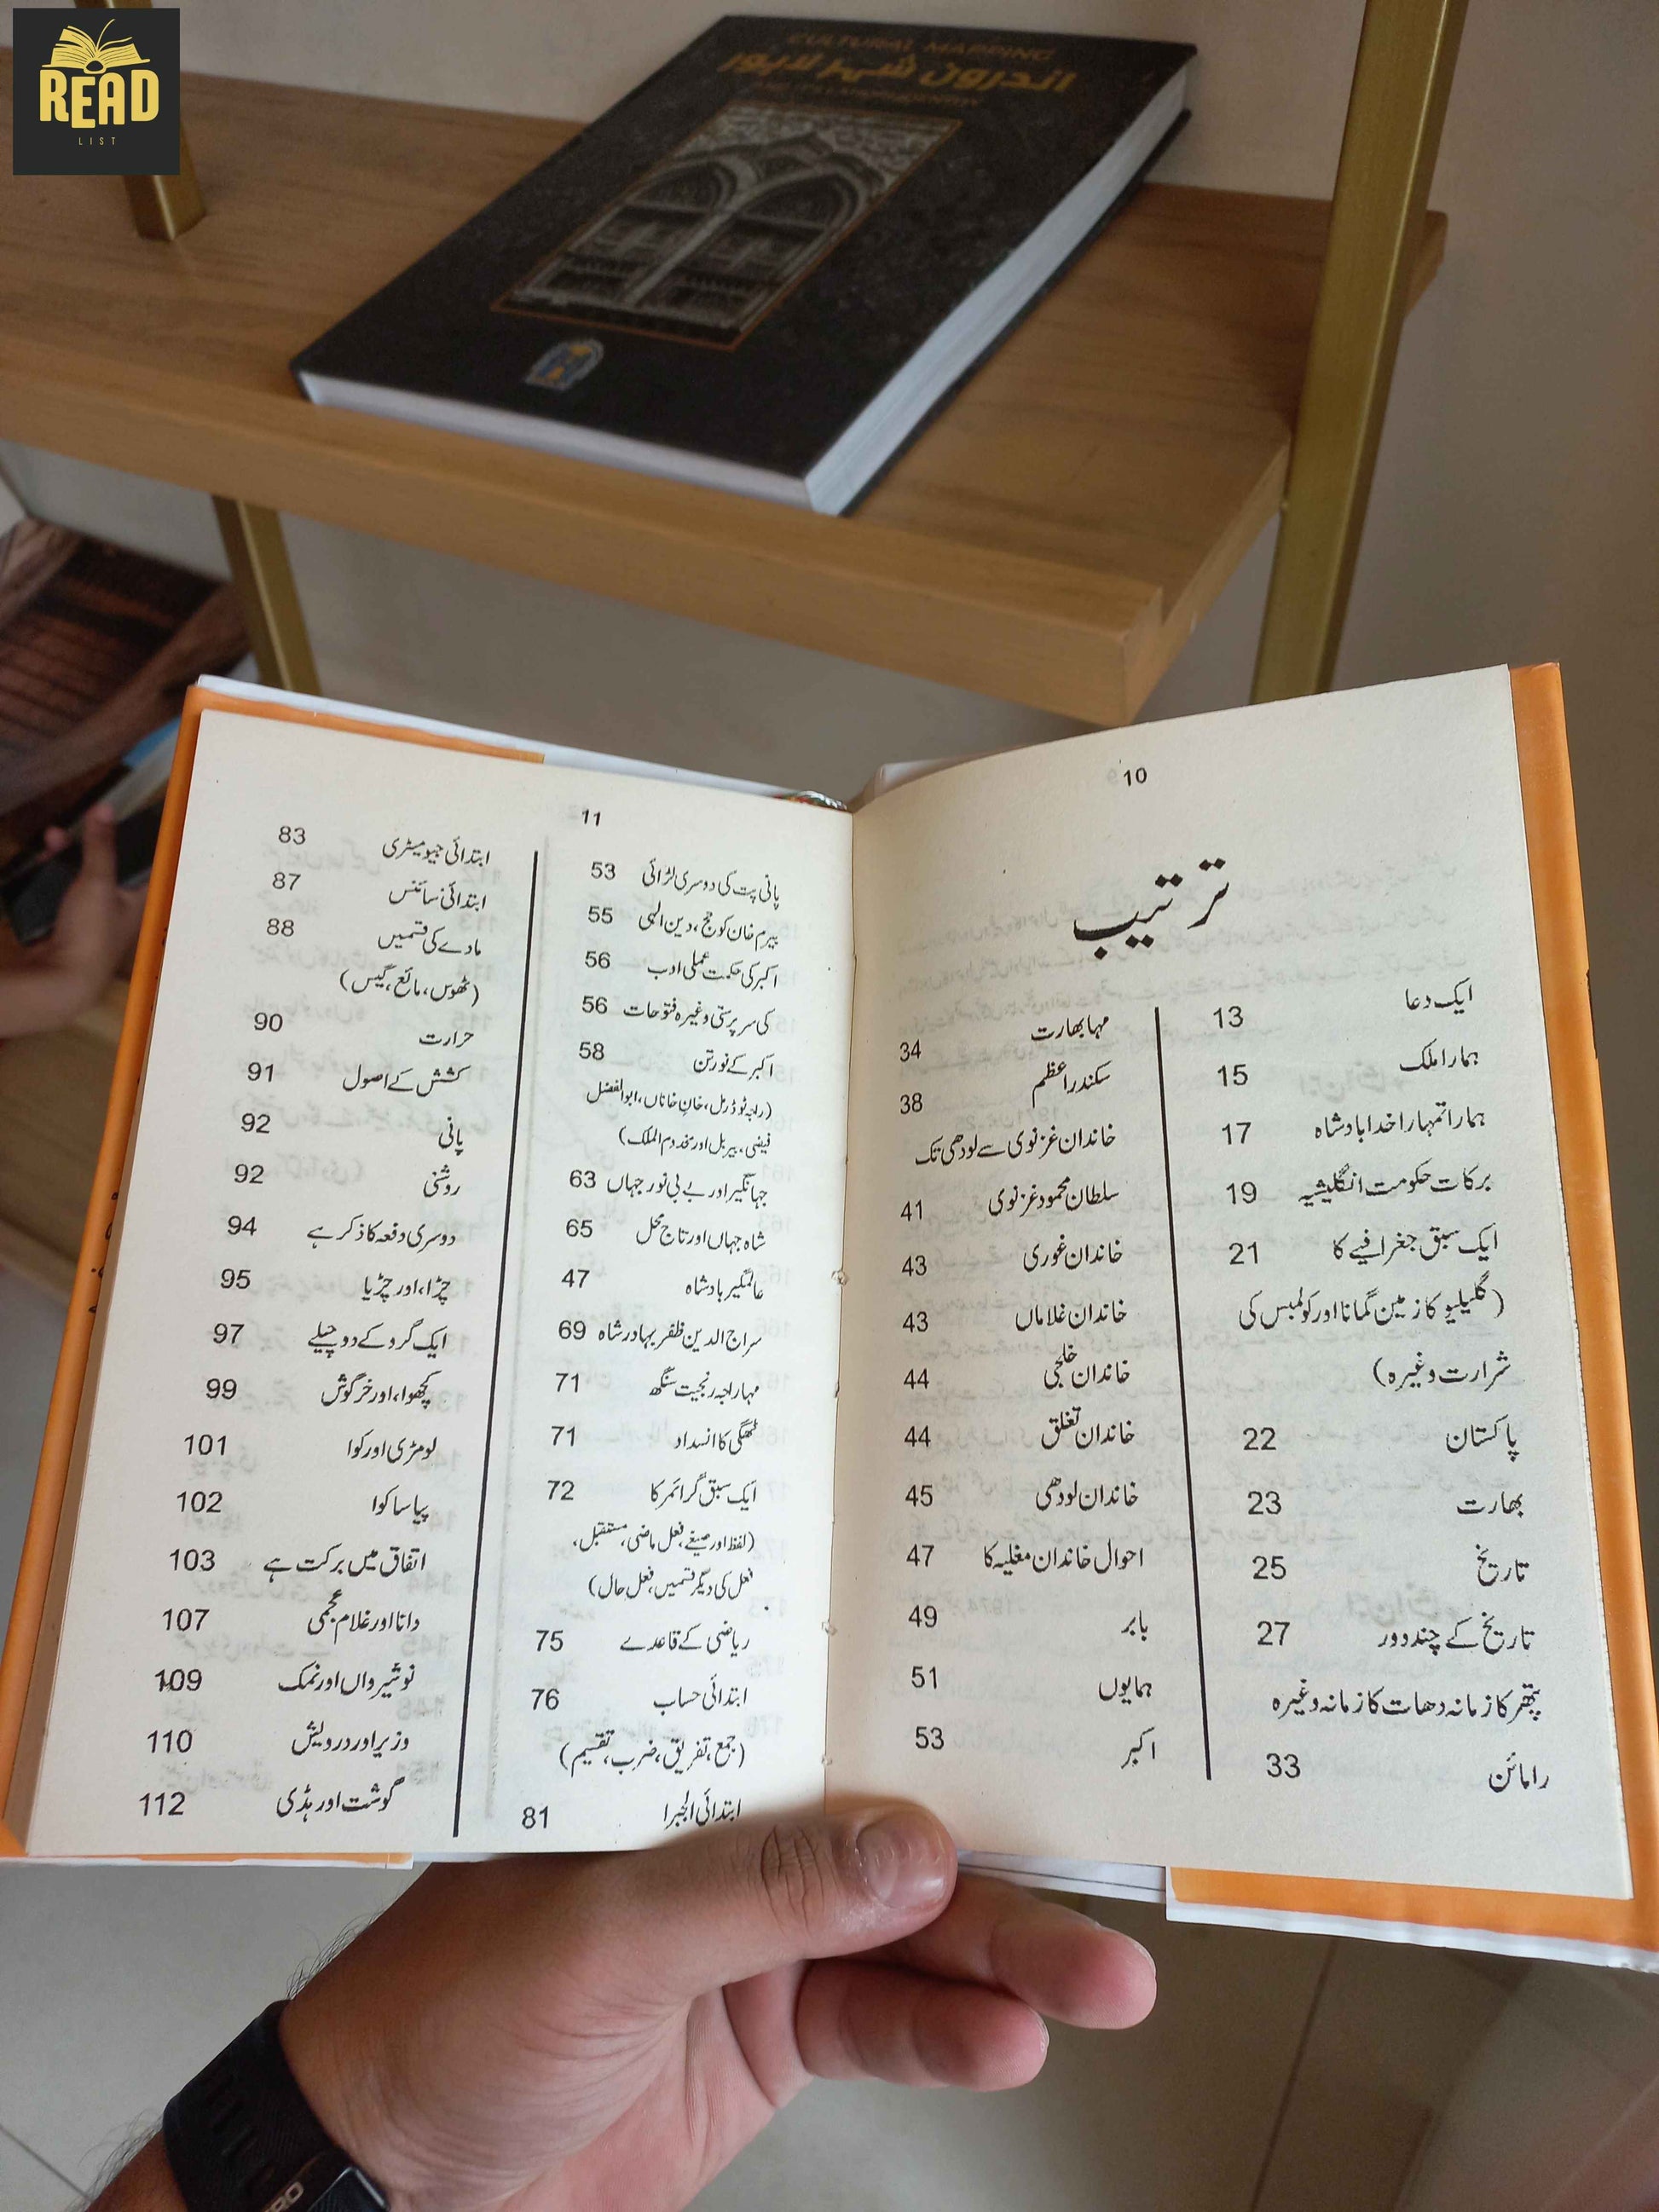 READ
LIST
CULTURAL MAPPING
اندرون شہر لاہور
10
ترتیب
ایک دعا 13
ہمارا ملک 15
ہمارا تمہارا خدا بادشاہ 17
برکات حکومت انگلیشیہ 19
ایک سبق جغرافیے کا 21
(گلیلیو کا زمین گمانا اور کولمبس کی
شرارت وغیرہ)
پاکستان 22
بھارت 23
تاریخ 25
تاریخ کے چند دور 27
پتھر کا زمانہ دھات کا زمانہ وغیرہ
رامائن 33
مہابھارت 34
سکندر اعظم 38
خاندان غزنوی سے لودھی تک
سلطان محمود غزنوی 41
خاندان غوری 43
خاندان غلاماں 43
خاندان خلجی 44
خاندان تغلق 44
خاندان لودھی 45
احوال خاندان مغلیہ کا 47
بابر 49
ہمایوں 51
اکبر 53
11
پانی پت کی دوسری لڑائی 53
بیرم خان کو حج، دین الہی 55
اکبر کی حکمت عملی ادب 56
کی سرپرستی وغیرہ فتوحات 56
اکبر کے نورتن 58
(راجہ ٹوڈرمل، خان خاناں، ابوالفضل
فیضی، بیربل اور مخدوم الملک)
جہانگیر اور بے بی نور جہاں 63
شاہ جہاں اور تاج محل 65
عالمگیر بادشاہ 47
سراج الدین ظفر بہادر شاہ 69
مہاراجہ رنجیت سنگھ 71
ٹھگی کا انسداد 71
ایک سبق گرائمر کا 72
(لفظ اور صیغے، فعل ماضی، مستقبل،
فعل کی دیگر قسمیں، فعل حال)
ریاضی کے قاعدے 75
ابتدائی حساب 76
(جمع، تفریق، ضرب، تقسیم)
ابتدائی الجبرا 81
ابتدائی جیومیٹری 83
ابتدائی سائنس 87
مادے کی قسمیں 88
(ٹھوس، مائع، گیس)
حرارت 90
کشش کے اصول 91
پانی 92
روشنی 92
دوسری دفعہ کا ذکر ہے 94
چڑا، اور چڑیا 95
ایک گرو کے دو چیلے 97
کچھوا، اور خرگوش 99
لومڑی اور کوا 101
پیاسا کوا 102
اتفاق میں برکت ہے 103
دانا اور غلام عجمی 107
نوشیرواں اور نمک 109
وزیر اور درویش 110
گوشت اور ہڈی 112